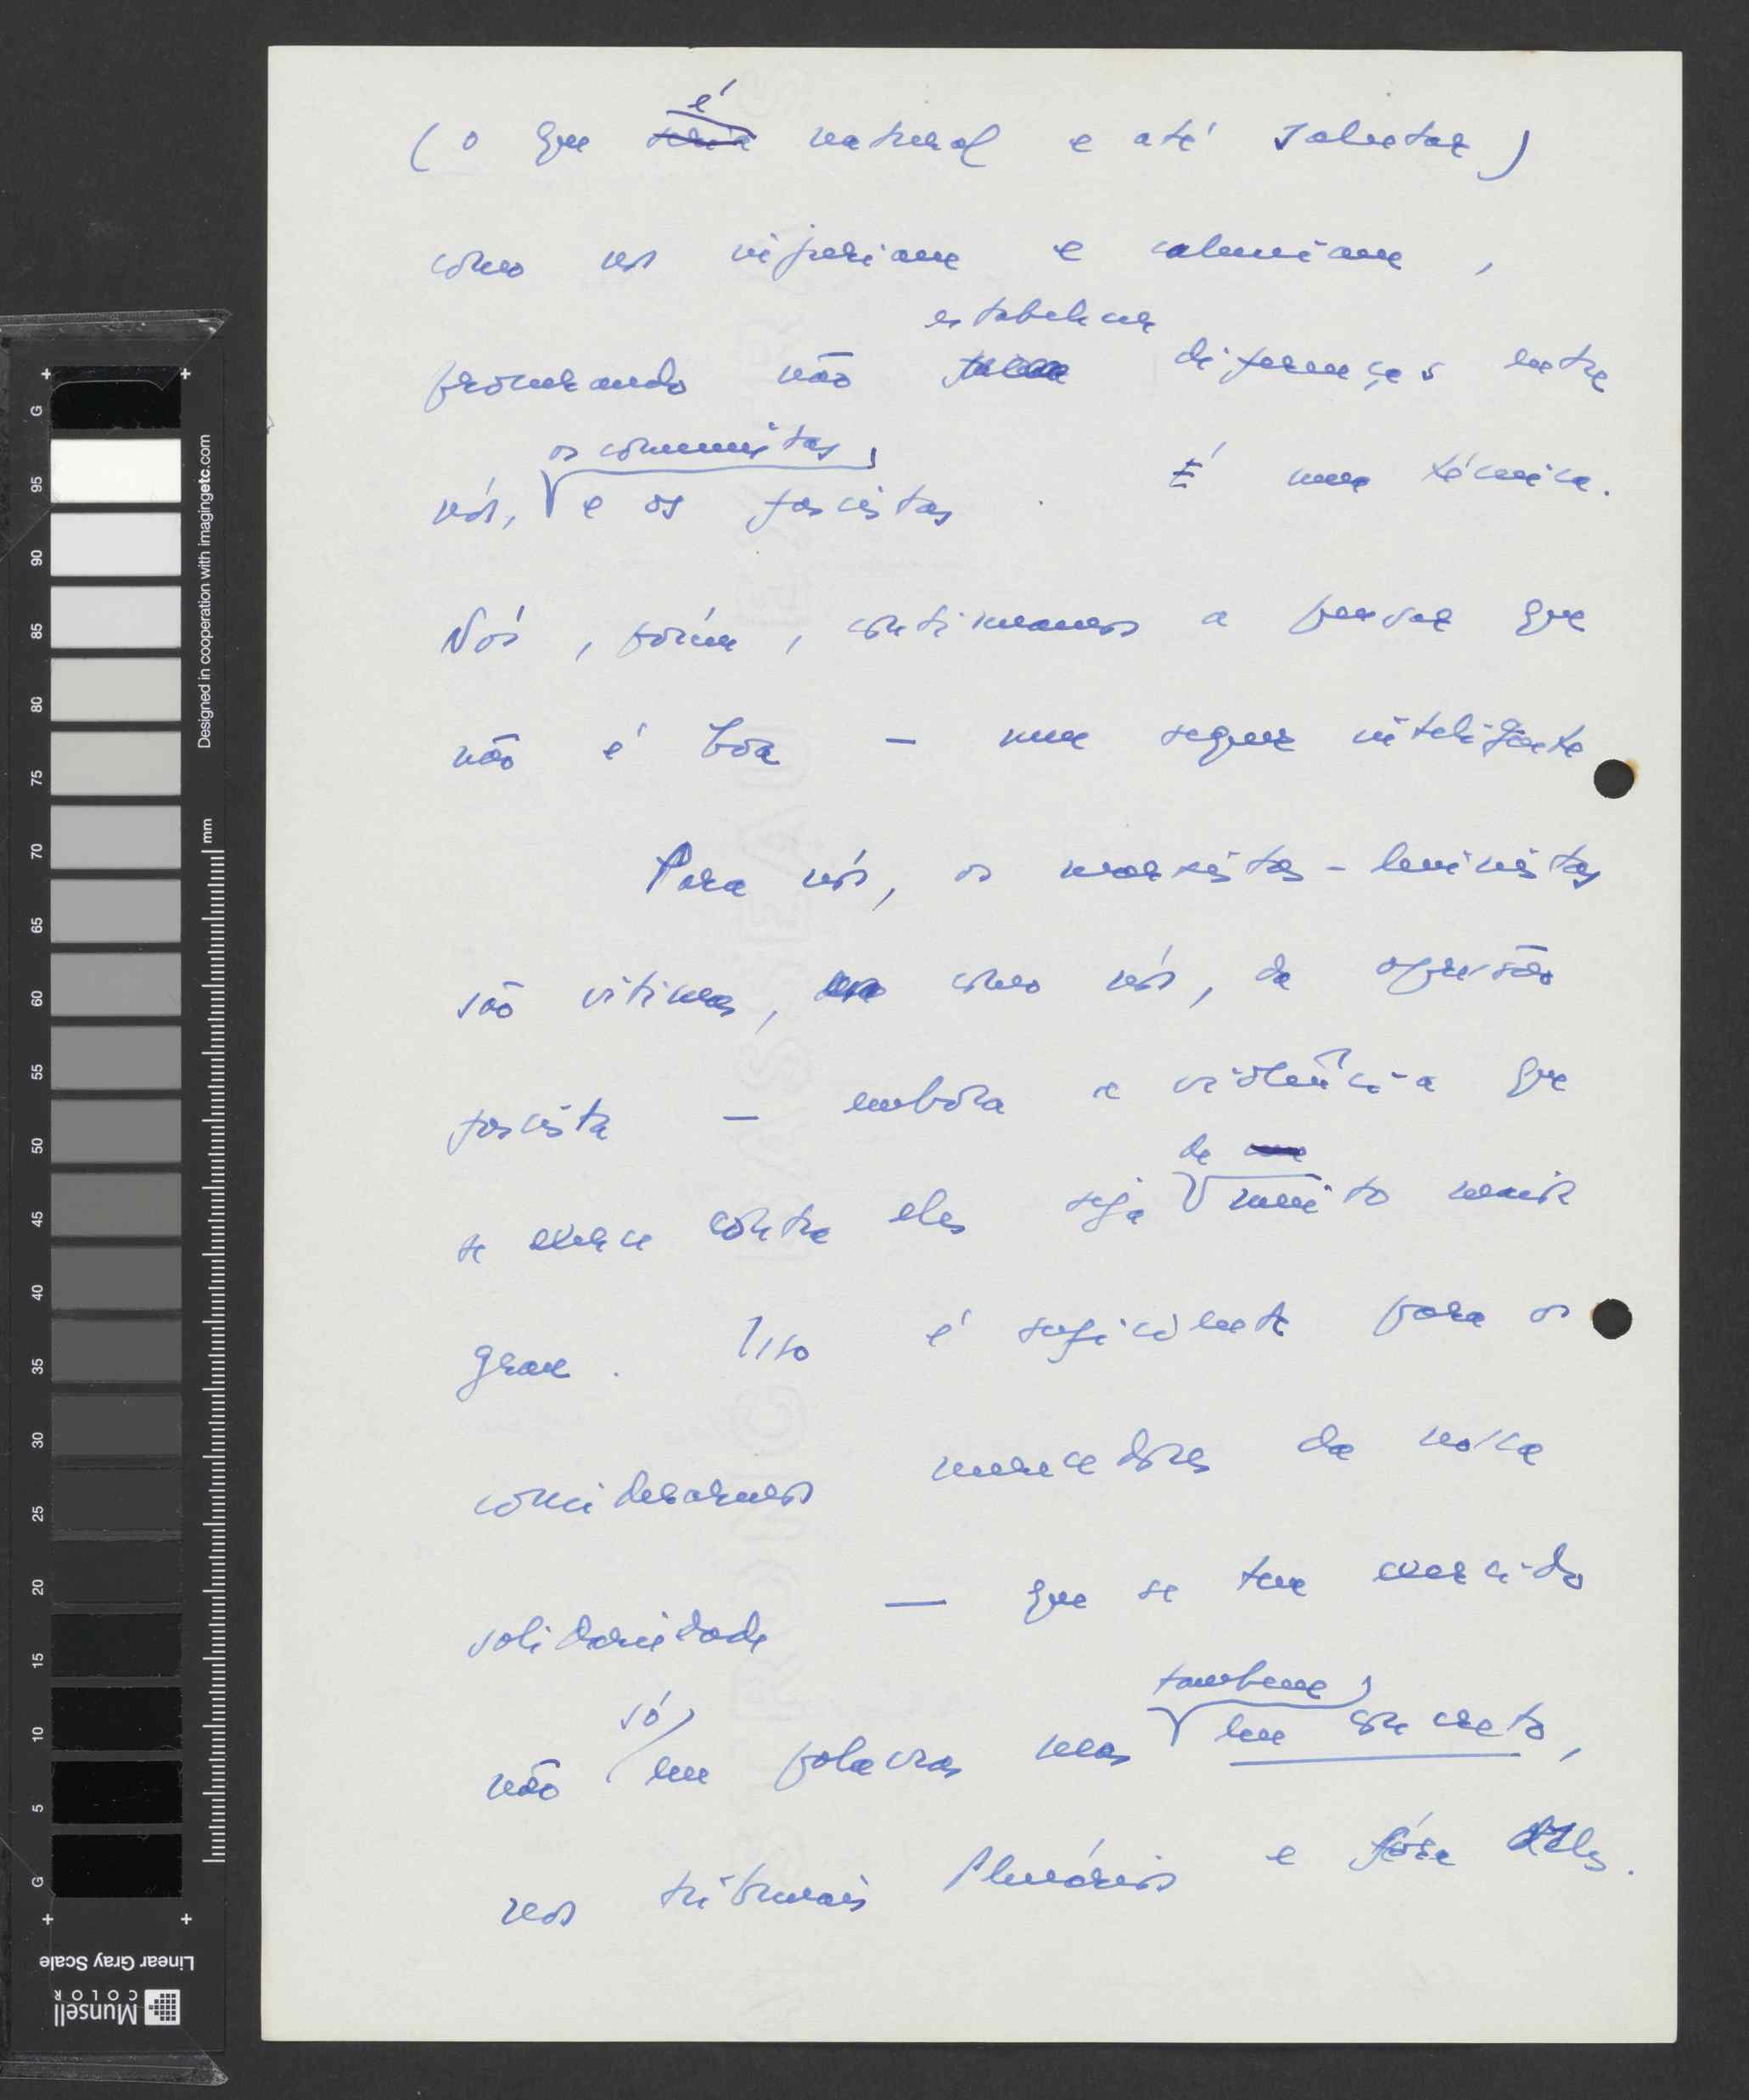 é
(o que seria natural e até salutar)
como nos injuriam e caluniam,
estabelecer
procurando não diferenças entre
os comunistas,
nós, e os fascistas. É uma técnica.
Nós, porém, continuamos a pensar que
não é boa — nem sequer inteligente
Para nós, os marxistas-leninistas
são vitimas, como nós, da opressão
fascista — embora a violência que
de
se exerce contra eles seja muito mais
grave. Isso é suficiente para os
considerarmos merecedores da nossa
solidariedade — que se tem exercido
só também
não em palavras mas em concreto,
nos tribunais Plenários e fóra deles.
G
95
90
85
80
75
70
65
60
55
50
45
40
35
30
25
20
15
10
5
G
Designed in cooperation with imagingetc.com
mm
Linear Gray Scale
Munsell
COLOR